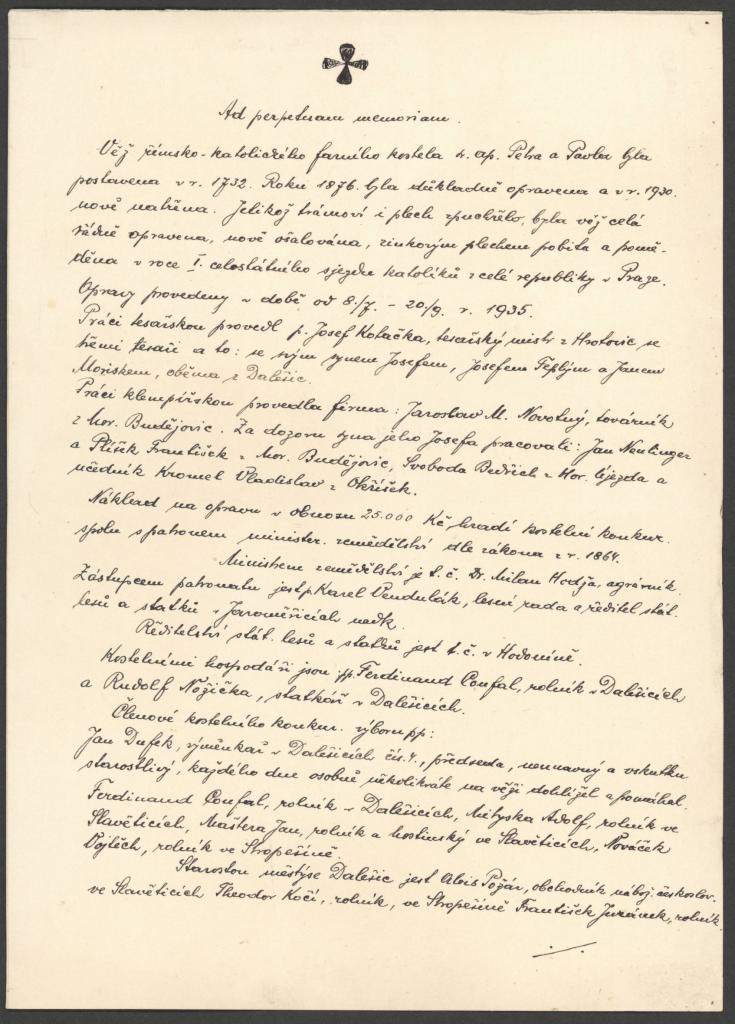 Ad perpetuam memoriam.
Věž římsko-katolického farního kostela s. ap. Petra a Pavla byla
postavena v r. 1732. Roku 1876. byla důkladně opravena a v r. 1930.
nově natřena. Jelikož trámoví i plech zpuchřelo, byla věž celá
řádně opravena, nově ošalována, zinkovým plechem pobita a pomě-
děna v roce I. celostátního sjezdu katolíků z celé republiky v Praze.
Opravy provedeny v době od 8./7. - 20./9. r. 1935.
Práci tesařskou provedl p. Josef Kotačka, tesařský mistr z Hrotovic se
třemi tesaři a to: se svým synem Josefem, Josefem Teplým a Janem
Mořiskem, oběma z Dalešic.
Práci klempířskou provedla firma: Jaroslav M. Novotný, továrník
z Mor. Budějovic. Za dozoru syna jeho Josefa pracovali: Jan Neulinger
a Plíšek František z Mor. Budějovic, Svoboda Bedřich z Hor. Újezda a
učedník Kromel Vladislav z Okříšek.
Náklad na opravu v obnosu 25.000 Kč hradí kostelní konkur.
spolu s patronem minister. zemědělství dle zákona z r. 1864.
Ministrem zemědělství je t. č. Dr. Milan Hodža, agrárník.
Zástupcem patronatu jest p. Karel Vendulák, lesní rada a ředitel stát.
lesů a statků v Jaroměřicích nadk.
Ředitelství stát. lesů a statků jest t. č. v Hodoníně.
Kostelními hospodáři jsou pp. Ferdinand Coufal, rolník v Dalešicích
a Rudolf Nožička, statkář v Dalešicích.
Členové kostelního konkur. výboru pp:
Jan Dufek, výměnkář v Dalešicích čís. 4., předseda, neunavný a vskutku
starostlivý, každého dne osobně několikrát na věži dohlížel a pomáhal.
Ferdinand Coufal, rolník v Dalešicích, Mityska Adolf, rolník ve
Slavěticích, Maštera Jan, rolník a hostinský ve Slavěticích, Nováček
Vojtěch, rolník ve Stropešíně.
Starostou městýse Dalešic jest Alois Požár, obchodník nábož. českoslov.
ve Slavěticích Theodor Kočí, rolník, ve Stropešíně František Juránek, rolník.